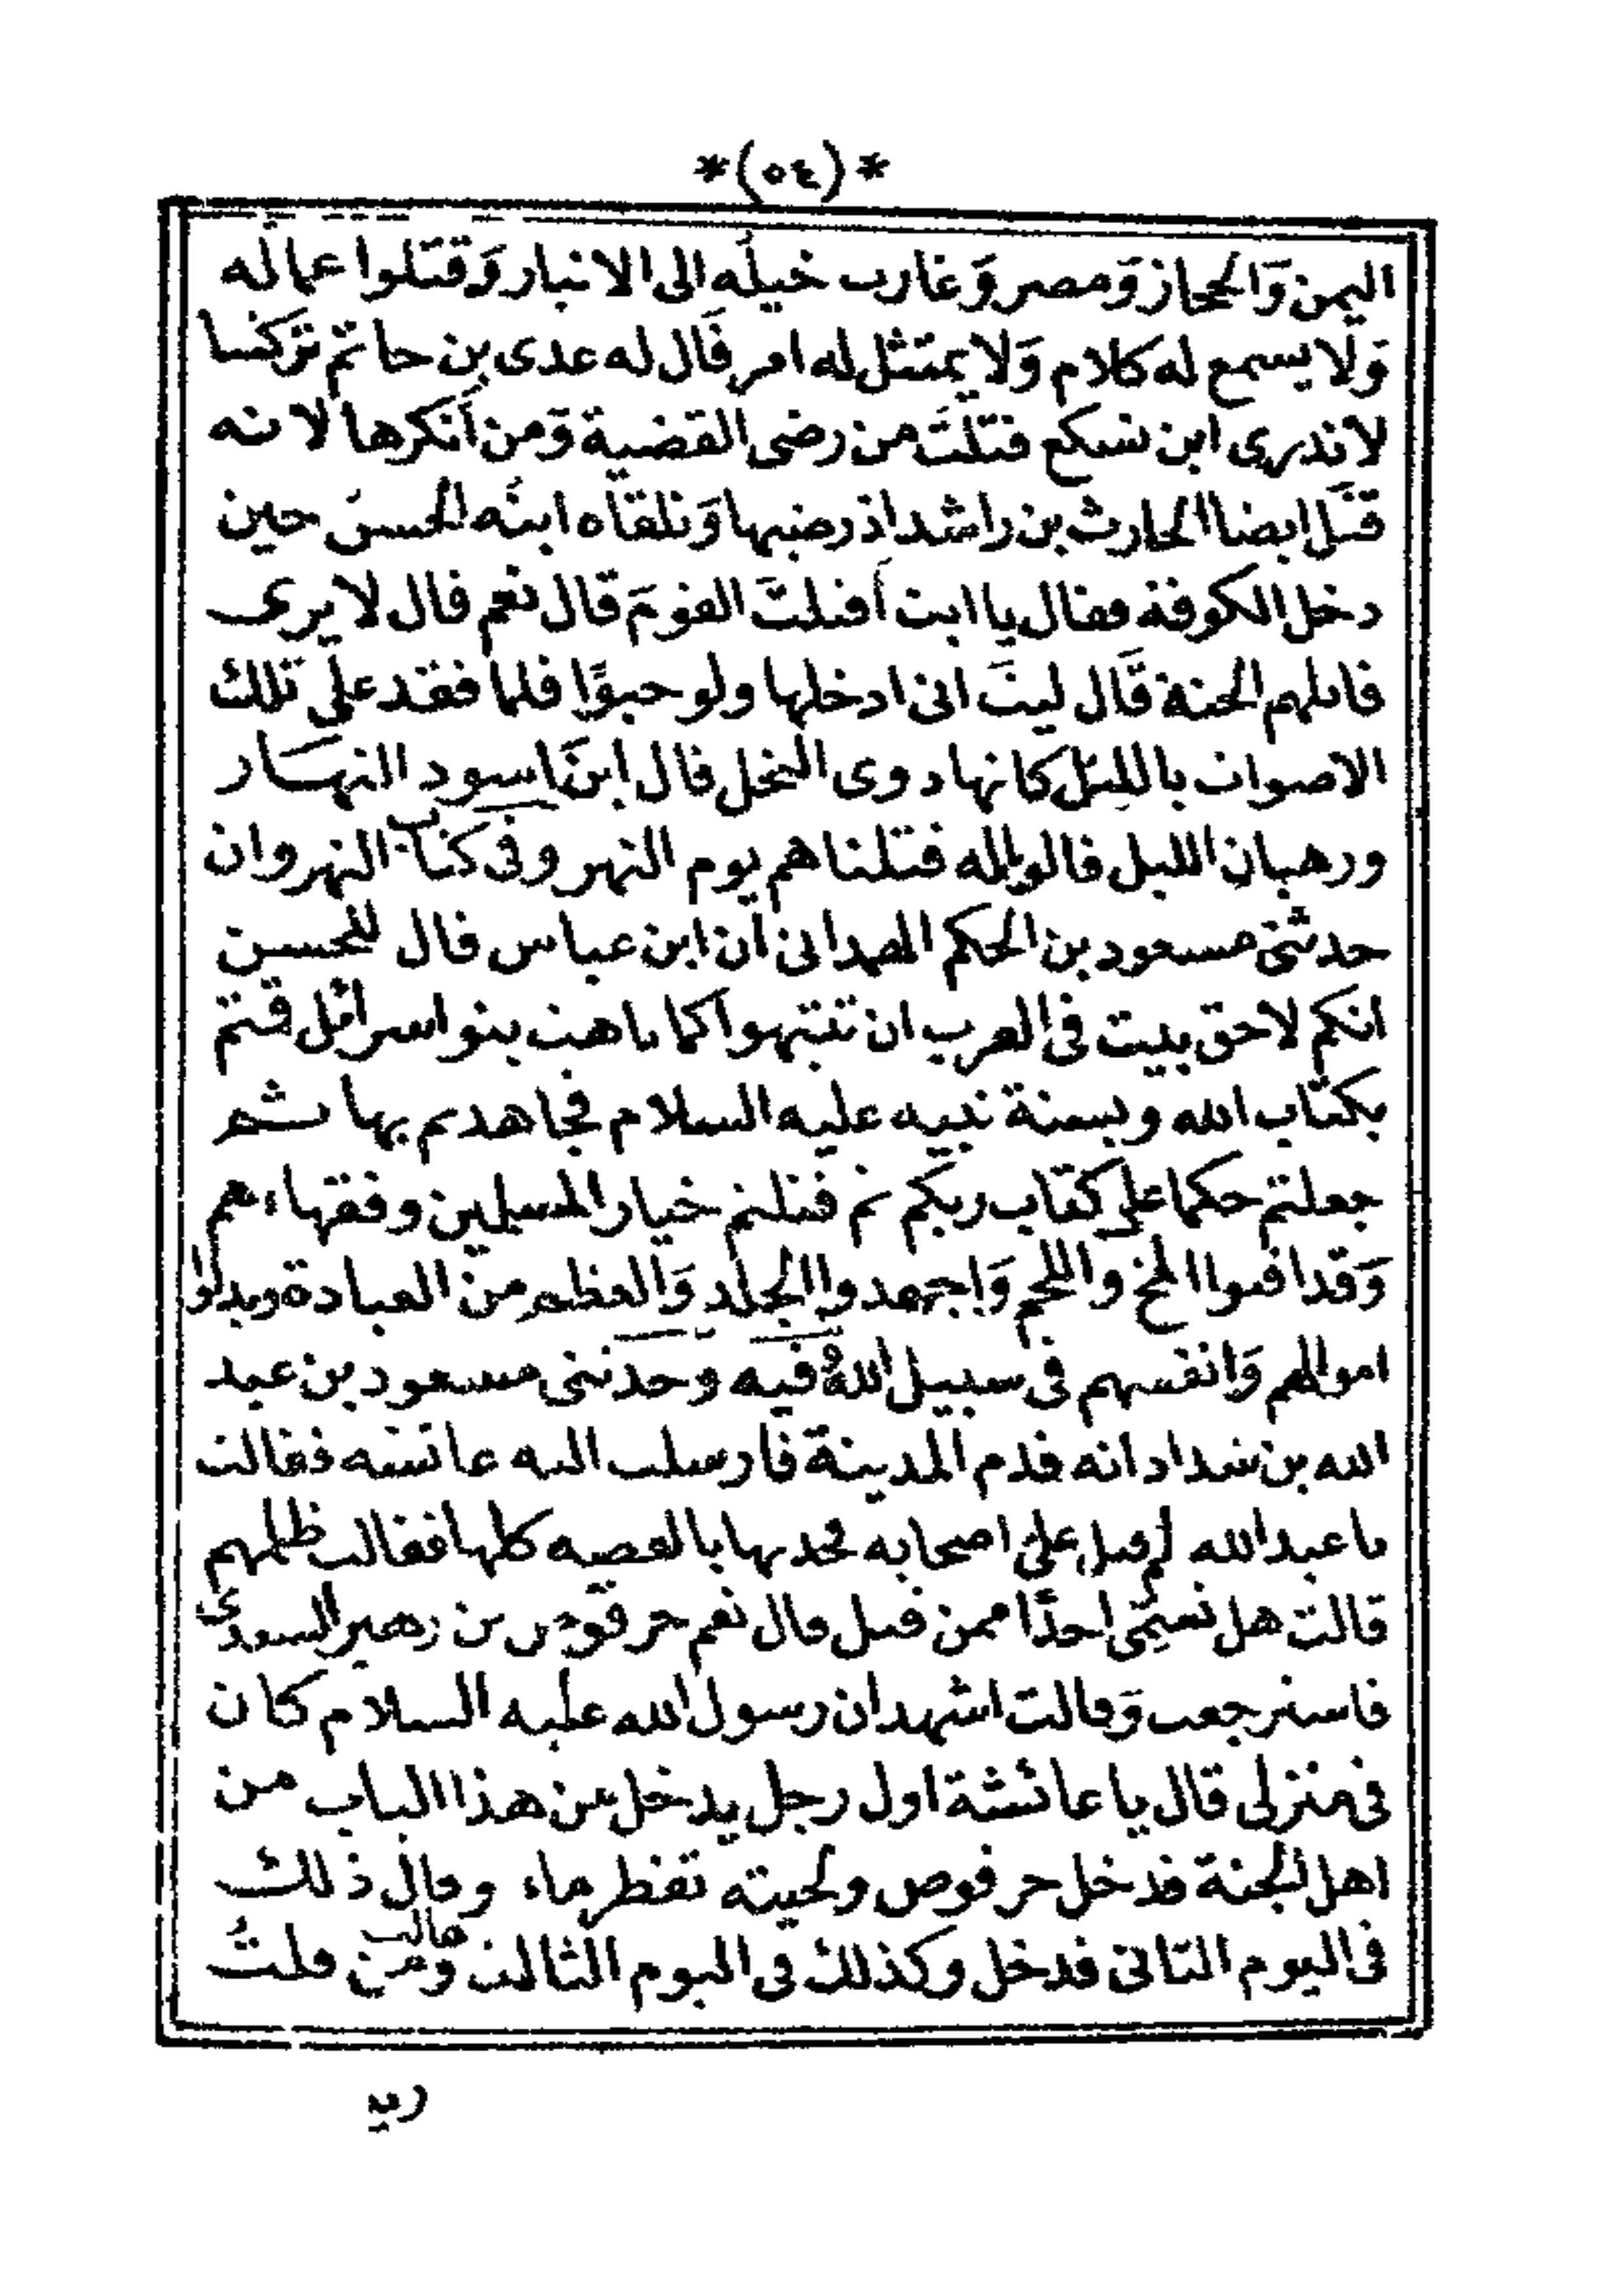 *(٥٤)*
اليمن وَالحجاز وَمصر وَغارت خيلَه الى الانبار وَقتَلوا عماله
وَلا يسمع له كلام وَلا يمتثل له امر قَال له عدى بن حاتم تركتنا
لا ندرى اين نسكع قتلتَ من رضى القضية وَمن أنكرها لانه
قتَل ايضا الحارث بن راشد اذ رضيها وَتلقاه ابنُه الحسنَ حين
دخل الكوفة فقال يا ابت أقتلتَ القومَ قال نعم قال لا يرى
قاتلهم الجنة قَال ليتَ انى ادخلها ولو حبوًا فلما فقد على تلك
الاصوات بالليل كانها دوى النحل قال اينَ اسود النهَار
ورهبان الليل قالوا له قتلناهم يوم النهر وفى كتاب النهروان
حدثنى مسعود بن الحكم الهمدانى ان ابن عباس قال للحسين
انكم لاحق بيت فى العرب ان تتيهوا كما تاهت بنو اسرائل قمتم
بكتاب الله وبسنة نبيه عليه السلام فجاهدتم بها ثم
جعلتم حكما على كتاب ربكم ثم قتلتم خيار المسلمين وفقهاءهم
وَقد افنوا المخ واللحم وَاجهدوا الجلد وَالعظم من العبادة وبذلوا
اموالهم وَانفسهم فى سبيل اللهُ فيه وحدثنى مسعود بن عبد
الله بن شداد انه قدم المدينة فارسلت اليه عائشه فقالت
يا عبد الله لم قتل على اصحابه فحدثها بالقصيه كلها فقالت ظلمهم
قالت هل تسمّى احدًا ممن قتل قال نعم حرقوص بن زهير السعدى
فاسترجعت وَقالت اشهد ان رسول الله عليه السلام كان
فى منزلى قال يا عائشة اول رجل يدخل من هذا الباب من
اهل الجنة فدخل حرقوص ولحيته تقطر ماء وقال ذلك
فى اليوم الثانى فدخل وكذلك فى اليوم الثالث قالت ومن قلتُ